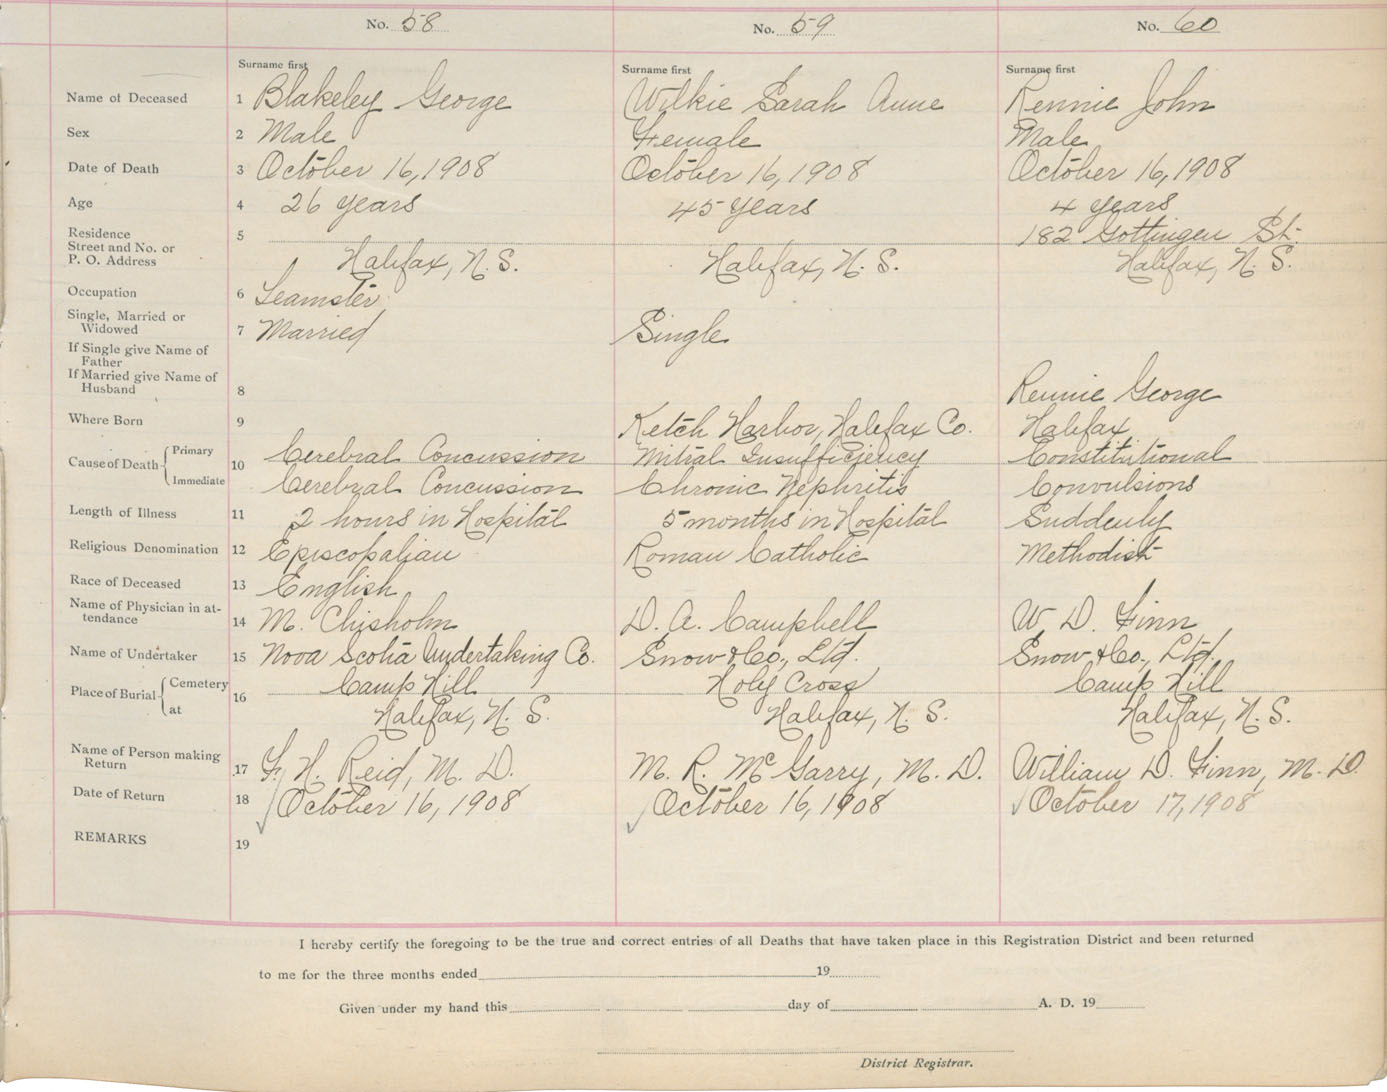 No. 58 No. 59 No. 60
Surname first Surname first Surname first
Name of Deceased 1 Blakeley George Wilkie Sarah Anne Rennie John
Sex 2 Male Female Male
Date of Death 3 October 16, 1908 October 16, 1908 October 16, 1908
Age 4 26 years 45 years 4 years
Residence 5 182 Gottingen St.
Street and No. or
P. O. Address Halifax, N. S. Halifax, N. S. Halifax, N. S.
Occupation 6 Teamster
Single, Married or
Widowed 7 Married Single
If Single give Name of
Father
If Married give Name of
Husband 8 Rennie George
Where Born 9 Ketch Harbor, Halifax Co. Halifax
Cause of Death Primary 10 Cerebral Concussion Mitral Insufficiency Constitutional
Immediate Cerebral Concussion Chronic Nephritis Convulsions
Length of Illness 11 2 hours in Hospital 5 months in Hospital Suddenly
Religious Denomination 12 Episcopalian Roman Catholic Methodist
Race of Deceased 13 English
Name of Physician in at-
tendance 14 M. Chisholm D. A. Campbell W. D. Finn
Name of Undertaker 15 Nova Scotia Undertaking Co. Snow & Co., Ltd. Snow & Co., Ltd.
Place of Burial Cemetery 16 Camp Hill Holy Cross Camp Hill
at Halifax, N. S. Halifax, N. S. Halifax, N. S.
Name of Person making
Return 17 F. H. Reid, M. D. M. R. McGarry, M. D. William D. Finn, M. D.
Date of Return 18 October 16, 1908 October 16, 1908 October 17, 1908
REMARKS 19
I hereby certify the foregoing to be the true and correct entries of all Deaths that have taken place in this Registration District and been returned
to me for the three months ended 19
Given under my hand this day of A. D. 19
District Registrar.